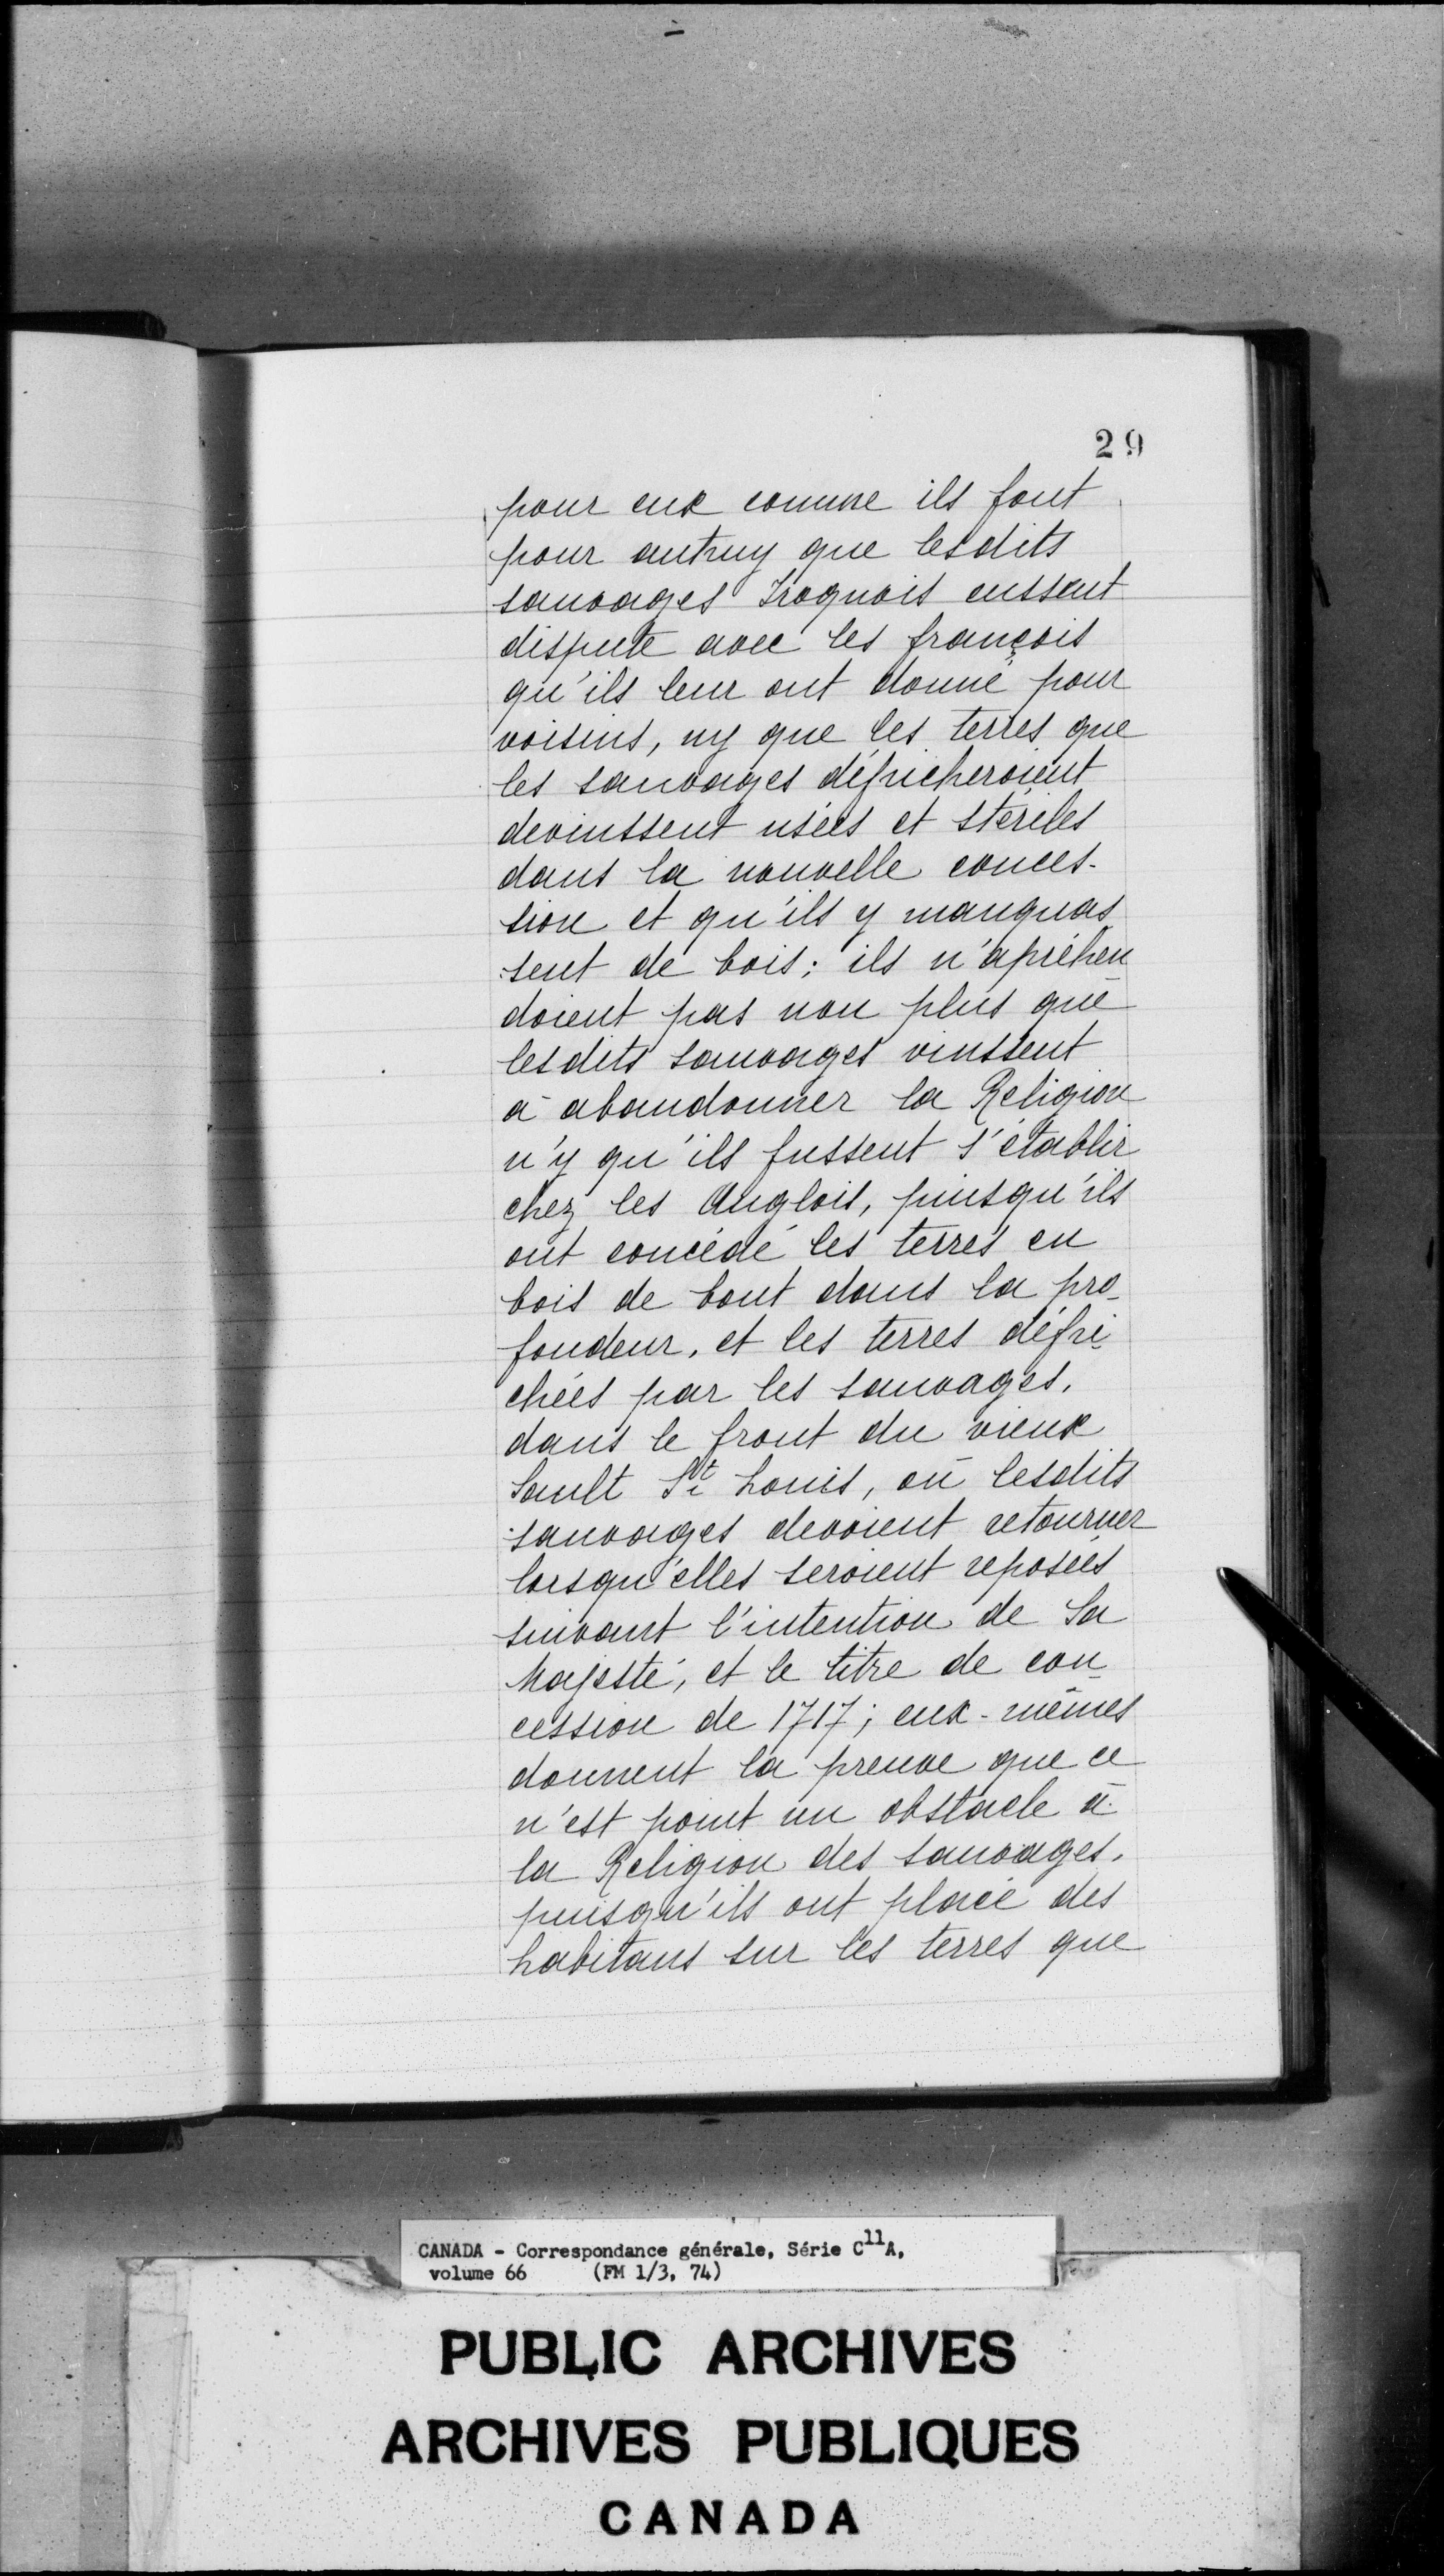 29
pour eux comme ils font
pour autruy que lesdits
sauvages Iroquois eussent
dispute avec les françois
qu'ils leur ont donné pour
voisins, ny que les terres que
les sauvages défricheroient
devinssent usées et stériles
dans la nouvelle conces-
sion et qu'ils y manquas
sent de bois; ils n'apréhen
doient pas non plus que
lesdits sauvages vinssent
à abandonner la Religion
n'y qu'ils fussent s'établir
chez les Anglois, puisqu'ils
ont concédé les terres en
bois de bout dans la pro-
fondeur, et les terres défri-
chées par les sauvages,
dans le front du vieux
Sault St Louis, où lesdits
sauvages devoient retourner
lorsqu'elles seroient reposées
suivant l'intention de Sa
Majesté, et le titre de con-
cession de 1717; eux-mêmes
donnent la preuve que ce
n'est point un obstacle à
la Religion des sauvages,
puisqu'ils ont placé des
habitans sur les terres que
CANADA - Correspondance générale, Série C11A,
volume 66 (FM 1/3, 74)
PUBLIC ARCHIVES
ARCHIVES PUBLIQUES
CANADA